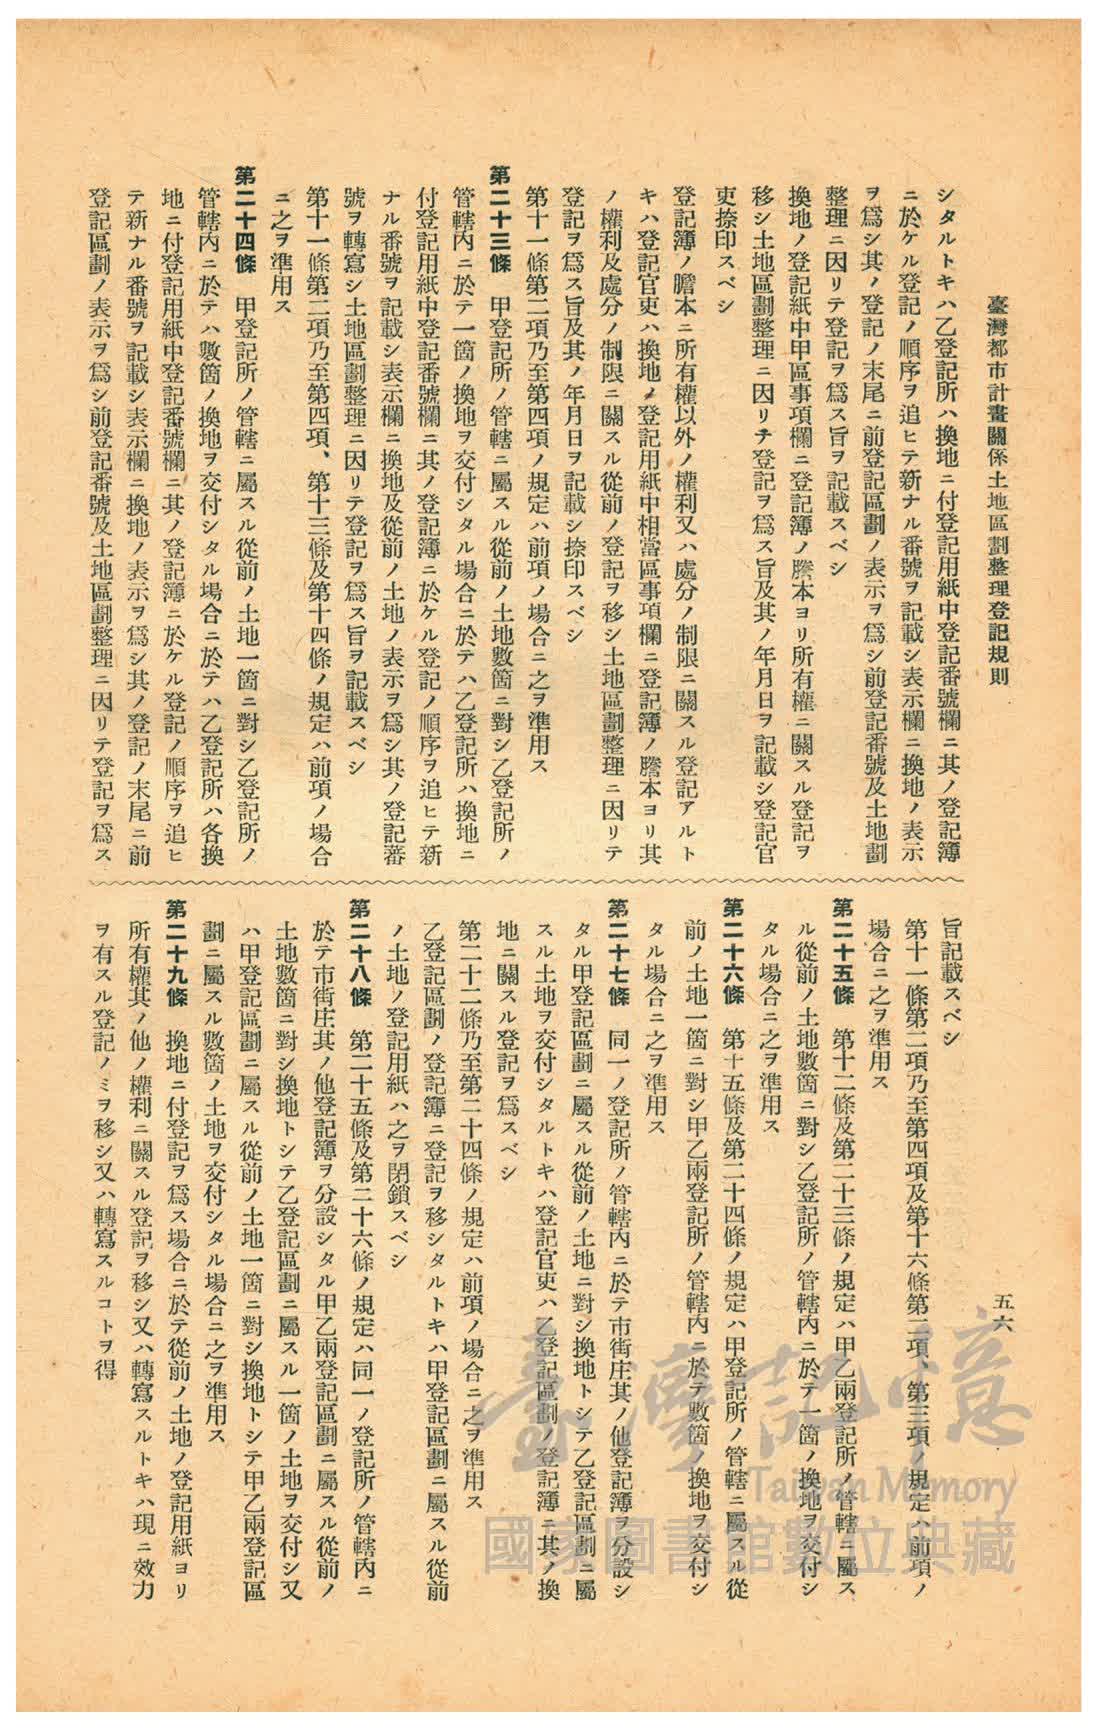 臺灣都市計畫關係土地區劃整理登記規則
五六
シタルトキハ乙登記所ハ換地ニ付登記用紙中登記番號欄ニ其ノ登記簿
ニ於ケル登記ノ順序ヲ追ヒテ新ナル番號ヲ記載シ表示欄ニ換地ノ表示
ヲ爲シ其ノ登記ノ末尾ニ前登記區劃ノ表示ヲ爲シ前登記番號及土地區劃
整理ニ因リテ登記ヲ爲ス旨ヲ記載スベシ
換地ノ登記紙中甲區事項欄ニ登記簿ノ謄本ヨリ所有權ニ關スル登記ヲ
移シ土地區劃整理ニ因リテ登記ヲ爲ス旨及其ノ年月日ヲ記載シ登記官
吏捺印スベシ
登記簿ノ謄本ニ所有權以外ノ權利又ハ處分ノ制限ニ關スル登記アルト
キハ登記官吏ハ換地ノ登記用紙中相當區事項欄ニ登記簿ノ謄本ヨリ其
ノ權利及處分ノ制限ニ關スル從前ノ登記ヲ移シ土地區劃整理ニ因リテ
登記ヲ爲ス旨及其ノ年月日ヲ記載シ捺印スベシ
第十一條第二項乃至第四項ノ規定ハ前項ノ場合ニ之ヲ準用ス
第二十三條　甲登記所ノ管轄ニ屬スル從前ノ土地數箇ニ對シ乙登記所ノ
管轄內ニ於テ一箇ノ換地ヲ交付シタル場合ニ於テハ乙登記所ハ換地ニ
付登記用紙中登記番號欄ニ其ノ登記簿ニ於ケル登記ノ順序ヲ追ヒテ新
ナル番號ヲ記載シ表示欄ニ換地及從前ノ土地ノ表示ヲ爲シ其ノ登記番
號ヲ轉寫シ土地區劃整理ニ因リテ登記ヲ爲ス旨ヲ記載スベシ
第十一條第二項乃至第四項、第十三條及第十四條ノ規定ハ前項ノ場合
ニ之ヲ準用ス
第二十四條　甲登記所ノ管轄ニ屬スル從前ノ土地一箇ニ對シ乙登記所ノ
管轄內ニ於テハ數箇ノ換地ヲ交付シタル場合ニ於テハ乙登記所ハ各換
地ニ付登記用紙中登記番號欄ニ其ノ登記簿ニ於ケル登記ノ順序ヲ追ヒ
テ新ナル番號ヲ記載シ表示欄ニ換地ノ表示ヲ爲シ其ノ登記ノ末尾ニ前
登記區劃ノ表示ヲ爲シ前登記番號及土地區劃整理ニ因リテ登記ヲ爲ス
旨記載スベシ
第十一條第二項乃至第四項及第十六條第二項、第三項ノ規定ハ前項ノ
場合ニ之ヲ準用ス
第二十五條　第十二條及第二十三條ノ規定ハ甲乙兩登記所ノ管轄ニ屬ス
ル從前ノ土地數箇ニ對シ乙登記所ノ管轄內ニ於テ一箇ノ換地ヲ交付シ
タル場合ニ之ヲ準用ス
第二十六條　第十五條及第二十四條ノ規定ハ甲登記所ノ管轄ニ屬スル從
前ノ土地一箇ニ對シ甲乙兩登記所ノ管轄內ニ於テ數箇ノ換地ヲ交付シ
タル場合ニ之ヲ準用ス
第二十七條　同一ノ登記所ノ管轄內ニ於テ市街庄其ノ他登記簿ヲ分設シ
タル甲登記區劃ニ屬スル從前ノ土地ニ對シ換地トシテ乙登記區劃ニ屬
スル土地ヲ交付シタルトキハ登記官吏ハ乙登記區劃ノ登記簿ニ其ノ換
地ニ關スル登記ヲ爲スベシ
第二十二條乃至第二十四條ノ規定ハ前項ノ場合ニ之ヲ準用ス
乙登記區劃ノ登記簿ニ登記ヲ移シタルトキハ甲登記區劃ニ屬スル從前
ノ土地ノ登記用紙ハ之ヲ閉鎖スベシ
第二十八條　第二十五條及第二十六條ノ規定ハ同一ノ登記所ノ管轄內ニ
於テ市街庄其ノ他登記簿ヲ分設シタル甲乙兩登記區劃ニ屬スル從前ノ
土地數箇ニ對シ換地トシテ乙登記區劃ニ屬スル一箇ノ土地ヲ交付シ又
ハ甲登記區劃ニ屬スル從前ノ土地一箇ニ對シ換地トシテ甲乙兩登記區
劃ニ屬スル數箇ノ土地ヲ交付シタル場合ニ之ヲ準用ス
第二十九條　換地ニ付登記ヲ爲ス場合ニ於テ從前ノ土地ノ登記用紙ヨリ
所有權其ノ他ノ權利ニ關スル登記ヲ移シ又ハ轉寫スルトキハ現ニ效力
ヲ有スル登記ノミヲ移シ又ハ轉寫スルコトヲ得
臺灣記憶
Taiwan Memory
國家圖書館數位典藏